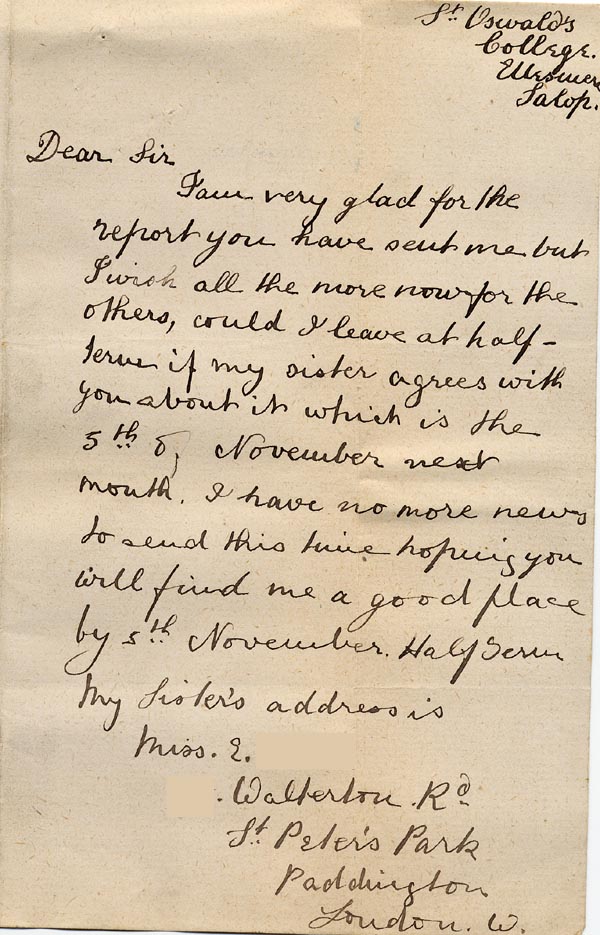 St Oswald's
College.
Ellesmere
Salop.
Dear Sir
I am very glad for the
report you have sent me but
I wish all the more now for the
others, could I leave at half-
term if my sister agrees with
you about it which is the
5th of November next
month. I have no more news
to send this time hoping you
will find me a good place
by 5th November. Half Term
My Sister's address is
Miss. E.
. Walterton. Rd
St Peter's Park
Paddington
London. W.